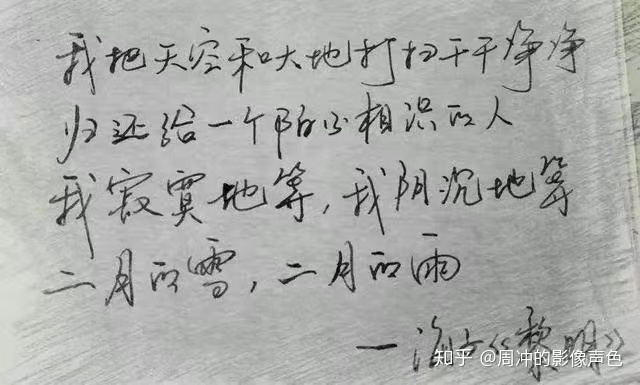 我把天空和大地打扫干干净净
归还给一个陌不相识的人
我寂寞地等，我阴沉地等
二月的雪，二月的雨
—海子《黎明》
知乎 @周冲的影像声色